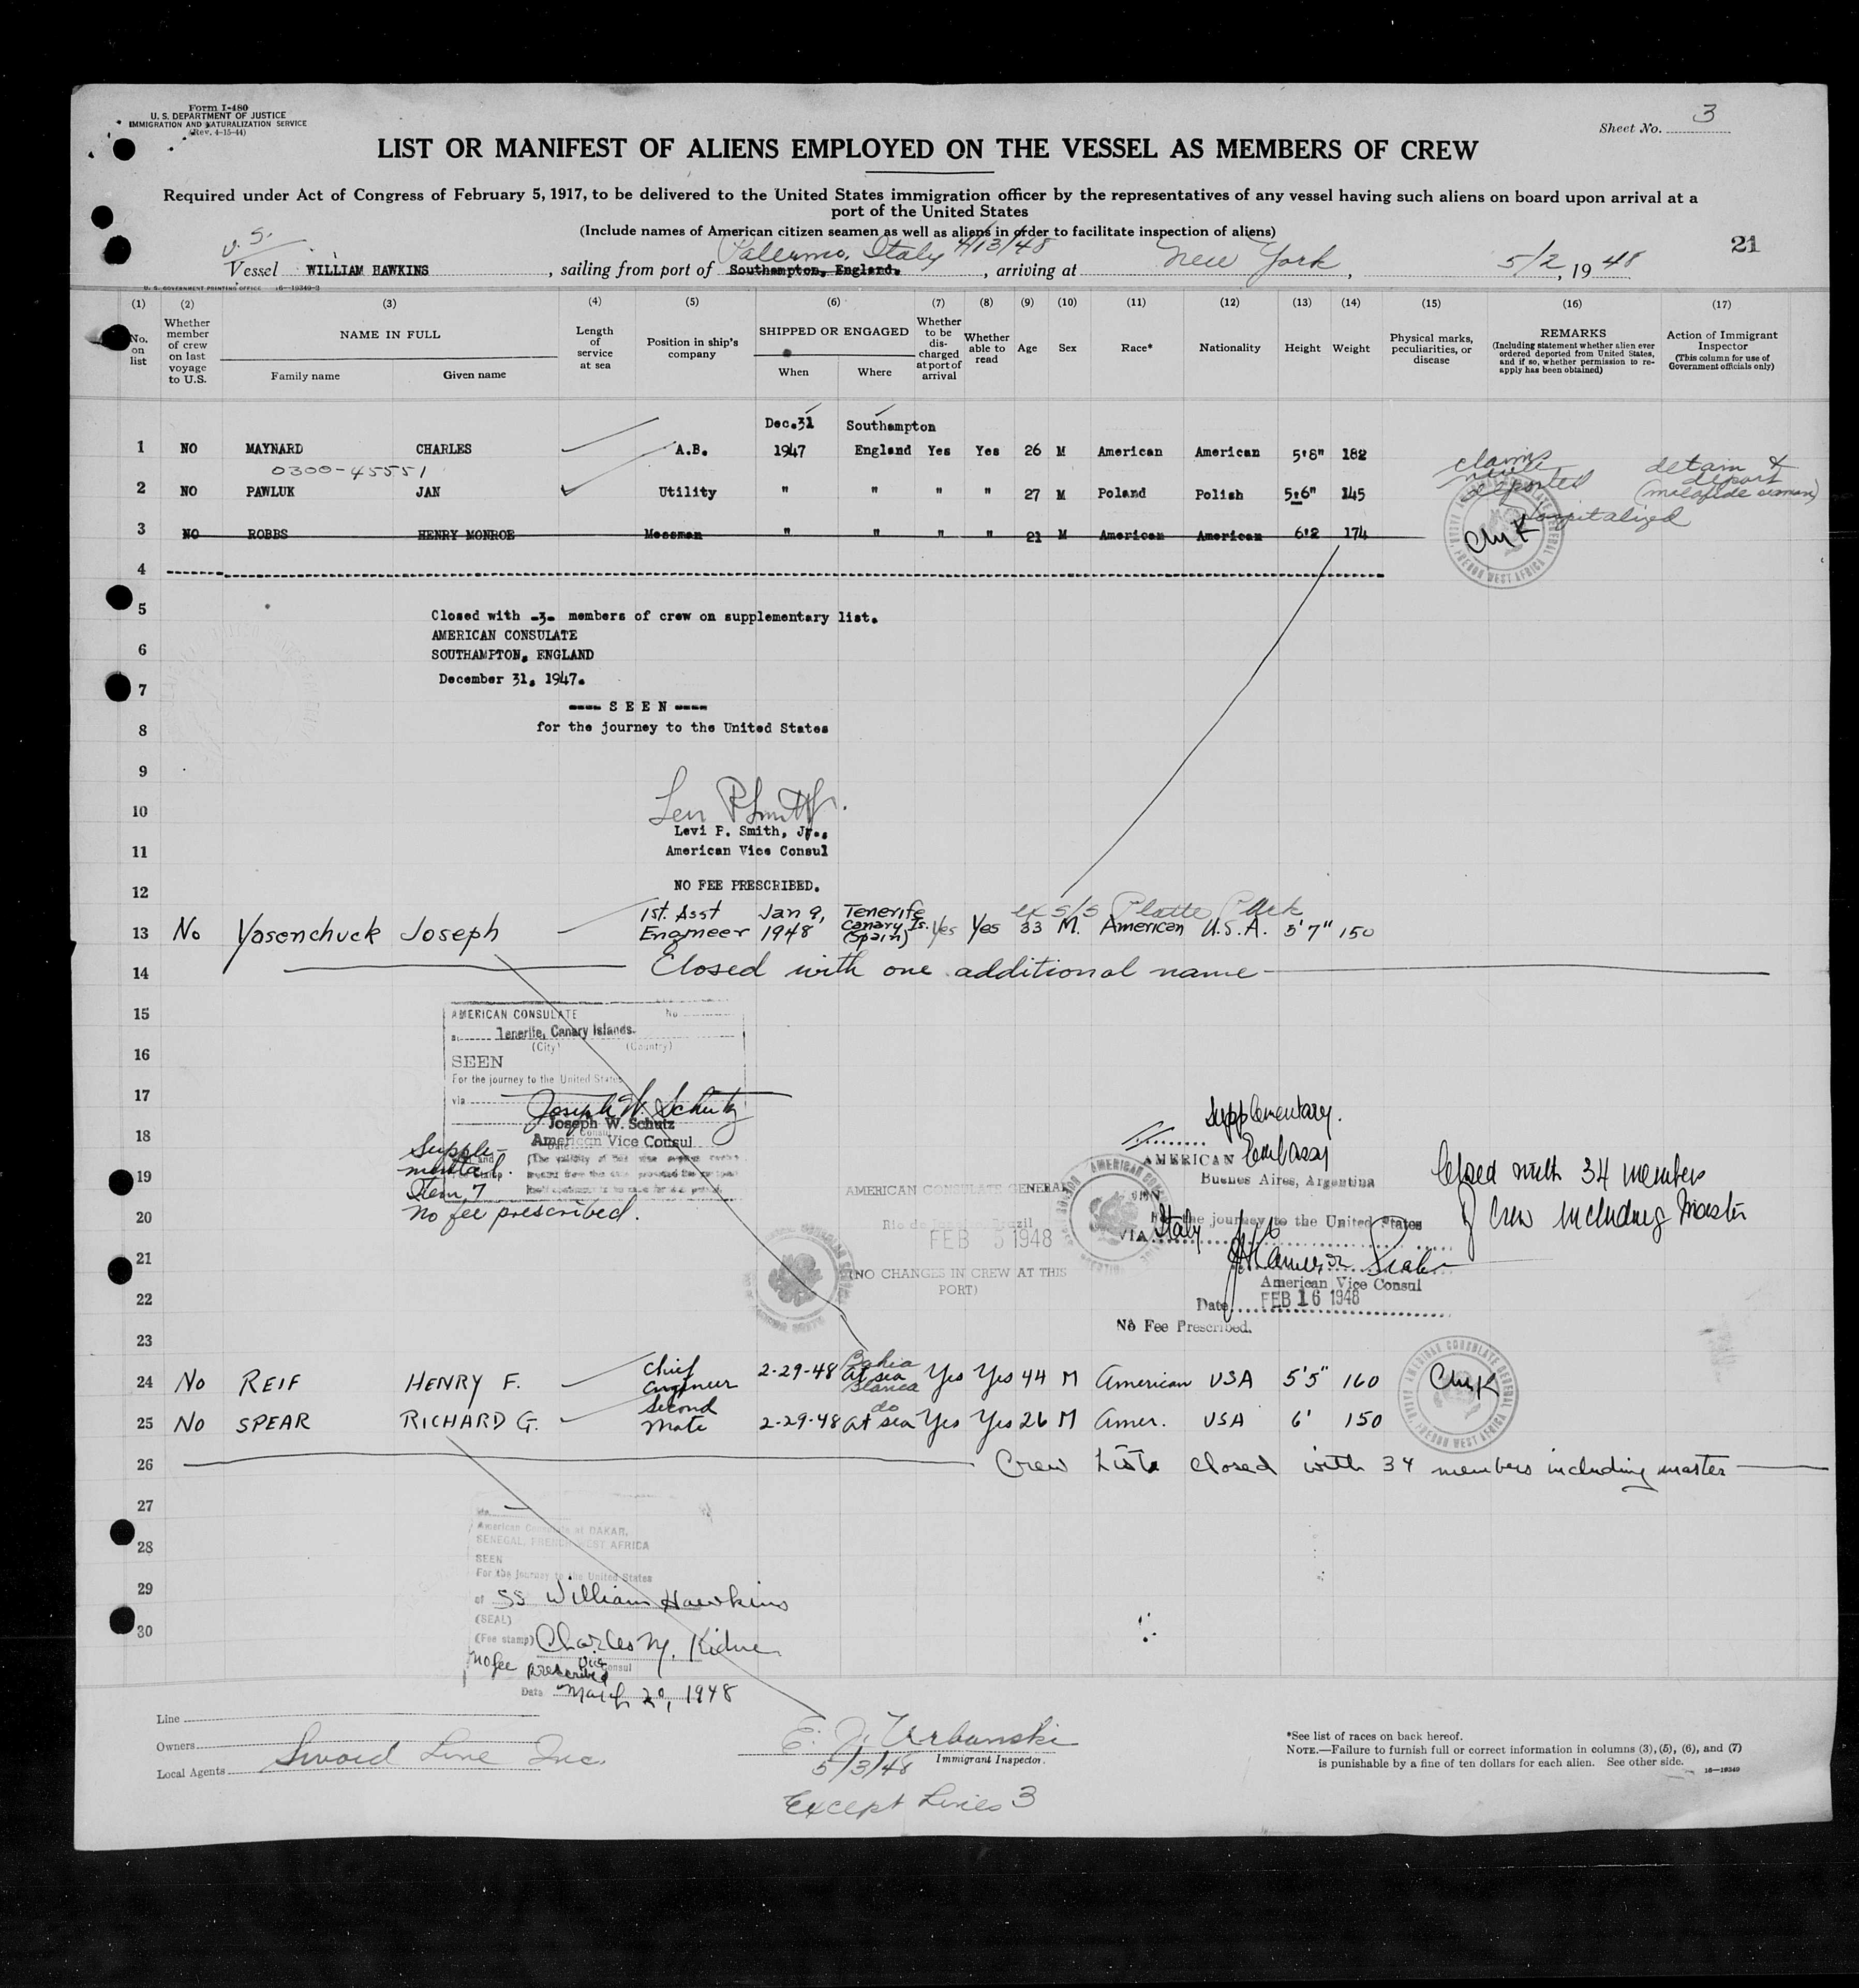 Form I-480
U. S. DEPARTMENT OF JUSTICE
IMMIGRATION AND NATURALIZATION SERVICE
(Rev. 4-15-44)
Sheet No. 3
LIST OR MANIFEST OF ALIENS EMPLOYED ON THE VESSEL AS MEMBERS OF CREW
Required under Act of Congress of February 5, 1917, to be delivered to the United States immigration officer by the representatives of any vessel having such aliens on board upon arrival at a
port of the United States
(Include names of American citizen seamen as well as aliens in order to facilitate inspection of aliens)
21
U. S.
Palermo, Italy 4/13/48
Vessel WILLIAM HAWKINS, sailing from port of Southampton, England., arriving at New York, 5/2, 1948
U. S. GOVERNMENT PRINTING OFFICE 16—19349-2
(1) (2) (3) (4) (5) (6) (7) (8) (9) (10) (11) (12) (13) (14) (15) (16) (17)
No. on list
Whether member of crew on last voyage to U.S.
NAME IN FULL
Family name
Given name
Length of service at sea
Position in ship's company
SHIPPED OR ENGAGED
When
Where
Whether to be discharged at port of arrival
Whether able to read
Age
Sex
Race*
Nationality
Height
Weight
Physical marks, peculiarities, or disease
REMARKS
(Including statement whether alien ever ordered deported from United States, and if so, whether permission to re-apply has been obtained)
Action of Immigrant Inspector
(This column for use of Government officials only)
Dec.31 Southampton
1 NO MAYNARD CHARLES A.B. 1947 England Yes Yes 26 M American American 5'8" 182
0300-45551
claims
deported
detain &
deport
2 NO PAWLUK JAN Utility " " " " 27 M Poland Polish 5'6" 145
Hospitalized
3 NO ROBBS HENRY MONROE Messman " " " " 21 M American American 6'2 174
CMyK
4
5
Closed with -3- members of crew on supplementary list.
AMERICAN CONSULATE
6
SOUTHAMPTON, ENGLAND
December 31, 1947.
7
---- S E E N ----
8
for the journey to the United States
9
10
Levi P. Smith, Jr.,
11
American Vice Consul
12
NO FEE PRESCRIBED.
ex S/S Platte Park
13 No Yosenchuck Joseph 1st. Asst Engineer Jan 9, 1948 Tenerife Canary Is. (Spain) Yes Yes 33 M. American U.S.A. 5'7" 150
14 Closed with one additional name
15
AMERICAN CONSULATE No
Tenerife, Canary Islands.
16
(City) (Country)
SEEN
For the journey to the United States
17
via
Joseph W. Schutz
Joseph W. Schutz
18
American Vice Consul
19
Supple-
mental.
Item 7
20
No fee prescribed.
AMERICAN CONSULATE GENERAL
Rio de Janeiro, Brazil
FEB 5 1948
21
(NO CHANGES IN CREW AT THIS
PORT)
22
Supplementary.
AMERICAN Embassy
Buenos Aires, Argentina
SEEN
For the journey to the United States
VIA Italy
American Vice Consul
Date FEB 16 1948
No Fee Prescribed.
Closed with 34 members
of crew including Master
23
24 No REIF HENRY F. Chief Engineer 2-29-48 Bahia at sea Blanca Yes Yes 44 M American USA 5'5" 160
25 No SPEAR RICHARD G. Second Mate 2-29-48 do at sea Yes Yes 26 M Amer. USA 6' 150
26 Crew List closed with 34 members including master
27
American Consulate at DAKAR,
SENEGAL, FRENCH WEST AFRICA
28
SEEN
For the journey to the United States
29
of SS William Hawkins
(SEAL)
30
(Fee stamp)
No fee prescribed
Vice Consul
Date March 20, 1948
Line
Owners
Local Agents
Sword Line Inc.
E. J. Urbanski
5/3/48 Immigrant Inspector.
Except Lines 3
*See list of races on back hereof.
NOTE.—Failure to furnish full or correct information in columns (3), (5), (6), and (7)
is punishable by a fine of ten dollars for each alien. See other side.
16—19349